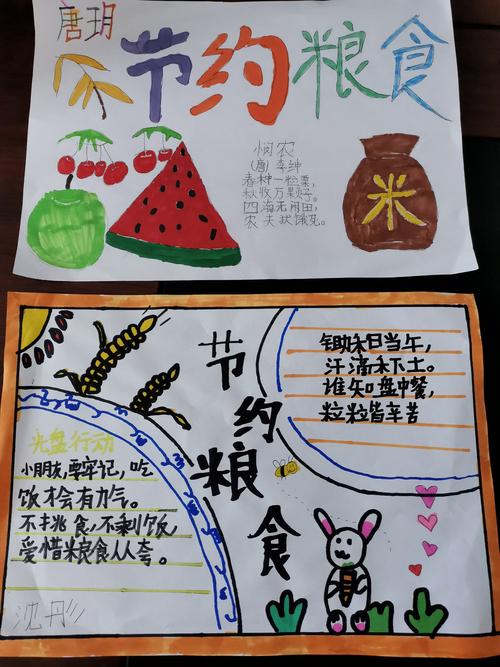 唐玥
节约粮食
悯农
(唐)李绅
春种一粒粟,
秋收万颗子。
四海无闲田,
农夫犹饿死。
米
节
约
粮
食
锄禾日当午,
汗滴禾下土。
谁知盘中餐,
粒粒皆辛苦
光盘行动
小朋友,要牢记,吃
饭才会有力气。
不挑食,不剩饭,
爱惜粮食人人夸。
沈彤